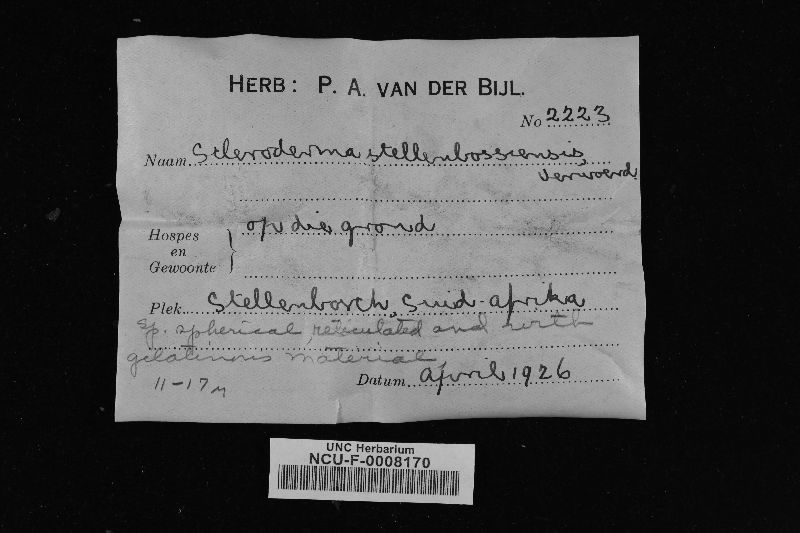 HERB: P. A. VAN DER BIJL.
No 2223
Naam Scleroderma stellenbossiensis
Verwoerd
Hospes en Gewoonte } op die grond
Plek Stellenbosch, Suid-Afrika
Sp. spherical, reticulated and with
gelatinous material
11-17 µ
Datum April 1926
UNC Herbarium
NCU-F-0008170